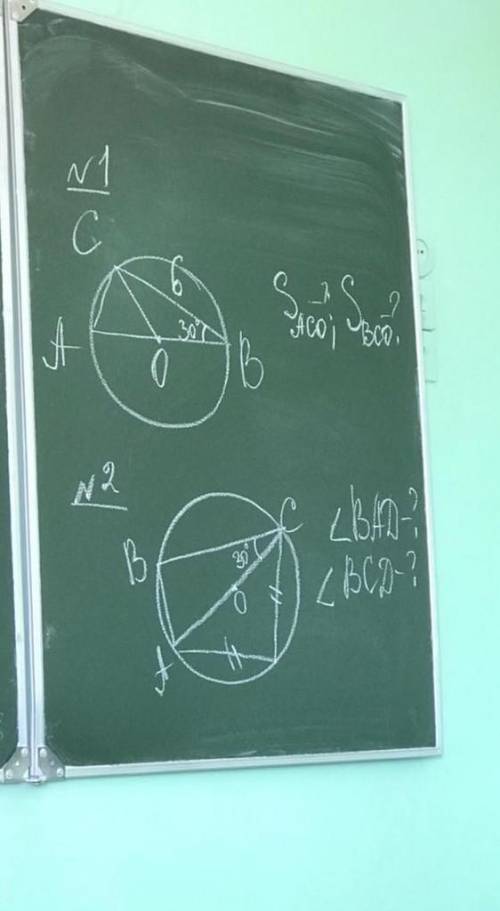 N1
C
6
30°
A
O
B
S ACO -?; S BCO -?
N2
C
B
30°
O
A
∠BAD-?
∠BCD-?